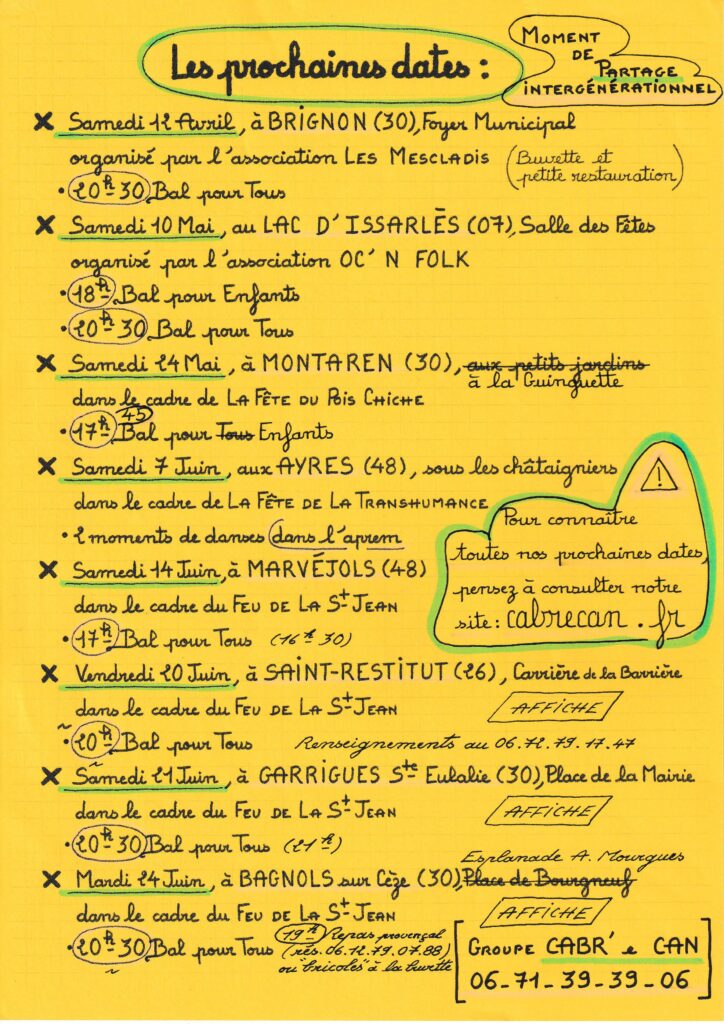 Les prochaines dates :
MOMENT
DE
PARTAGE
INTERGÉNÉRATIONNEL
Samedi 12 Avril, à BRIGNON (30), Foyer Municipal
organisé par l'association LES MESCLADIS
(Buvette et
petite restauration)
• 20h-30 Bal pour Tous
Samedi 10 Mai, au LAC D'ISSARLÈS (07), Salle des Fêtes
organisé par l'association OC' N FOLK
• 18h Bal pour Enfants
• 20h-30 Bal pour Tous
Samedi 24 Mai, à MONTAREN (30), aux petits jardins
à la Guinguette
dans le cadre de LA FÊTE DU POIS CHICHE
45
• 17h Bal pour Tous Enfants
Samedi 7 Juin, aux AYRES (48), sous les châtaigniers
dans le cadre de LA FÊTE DE LA TRANSHUMANCE
• 2 moments de danses dans l'aprem
!
Pour connaître
toutes nos prochaines dates,
pensez à consulter notre
site : cabrecan.fr
Samedi 14 Juin, à MARVÉJOLS (48)
dans le cadre du FEU DE LA St JEAN
• 17h Bal pour Tous (16h30)
Vendredi 20 Juin, à SAINT-RESTITUT (26), Carrière de la Barrière
dans le cadre du FEU DE LA St JEAN
AFFICHE
• 20h Bal pour Tous Renseignements au 06.72.79.17.47
Samedi 21 Juin, à GARRIGUES Ste Eulalie (30), Place de la Mairie
dans le cadre du FEU DE LA St JEAN
AFFICHE
• 20h-30 Bal pour Tous (21h)
Esplanade A. Mourgues
Mardi 24 Juin, à BAGNOLS sur Cèze (30), Place de Bourgneuf
dans le cadre du FEU DE LA St JEAN
AFFICHE
• 20h-30 Bal pour Tous
19h Repas provençal
(rés. 06.12.79.07.88)
ou "bricoles" à la buvette
GROUPE CABR' e CAN
06-71-39-39-06